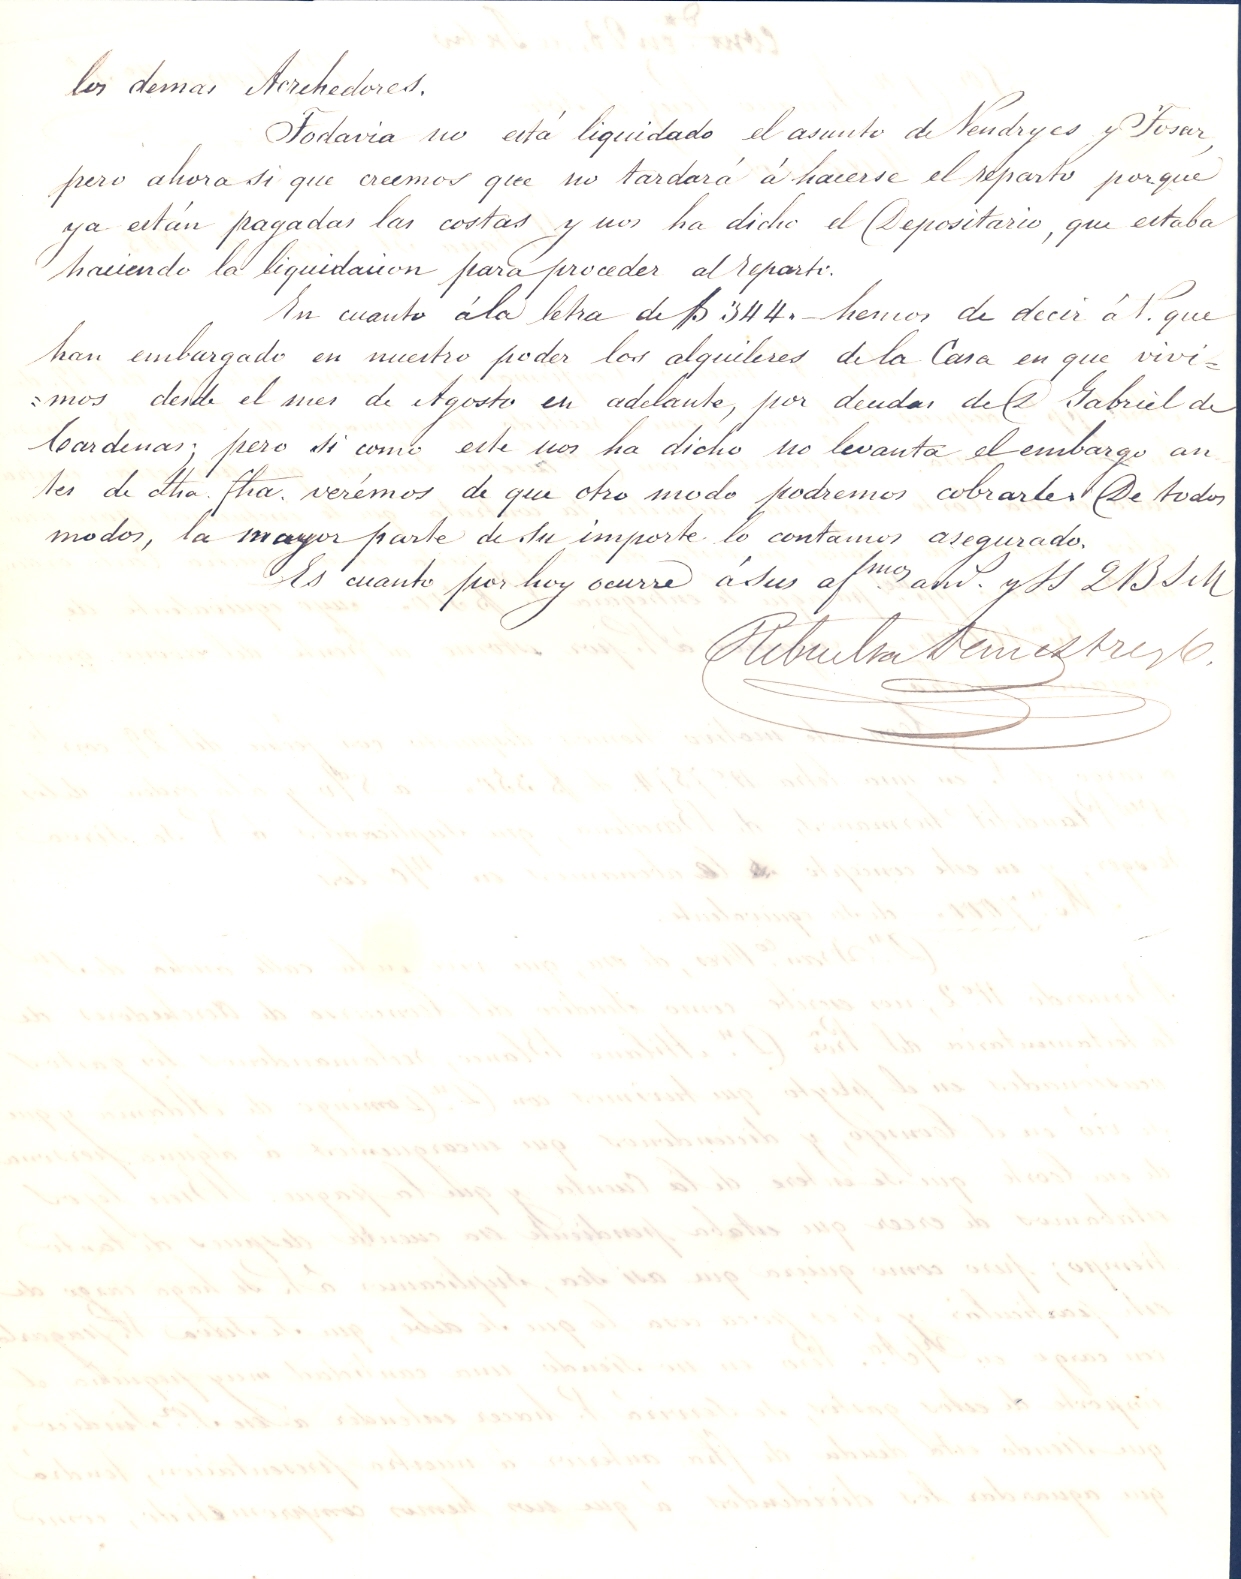 los demas Acrehedores.
Todavia no está liquidado el asunto de Vendryes y Tosar,
pero ahora si que creemos que no tardará á hacerse el reparto porque
ya están pagadas las costas y nos ha dicho el Depositario, que estaba
haciendo la liquidacion para proceder al reparto.
En cuanto á la letra de $ 344.- hemos de decir á V. que
han embargado en nuestro poder los alquileres de la Casa en que vivi=
=mos desde el mes de Agosto en adelante, por deudas de D Gabriel de
Cardenas; pero si como este nos ha dicho no levanta el embargo an-
tes de dha. fha. verémos de que otro modo podremos cobrarle. De todos
modos, la mayor parte de su importe lo contamos asegurado.
Es cuanto por hoy ocurre á sus afmos am.s y SS Q B S M
Demestre y C.